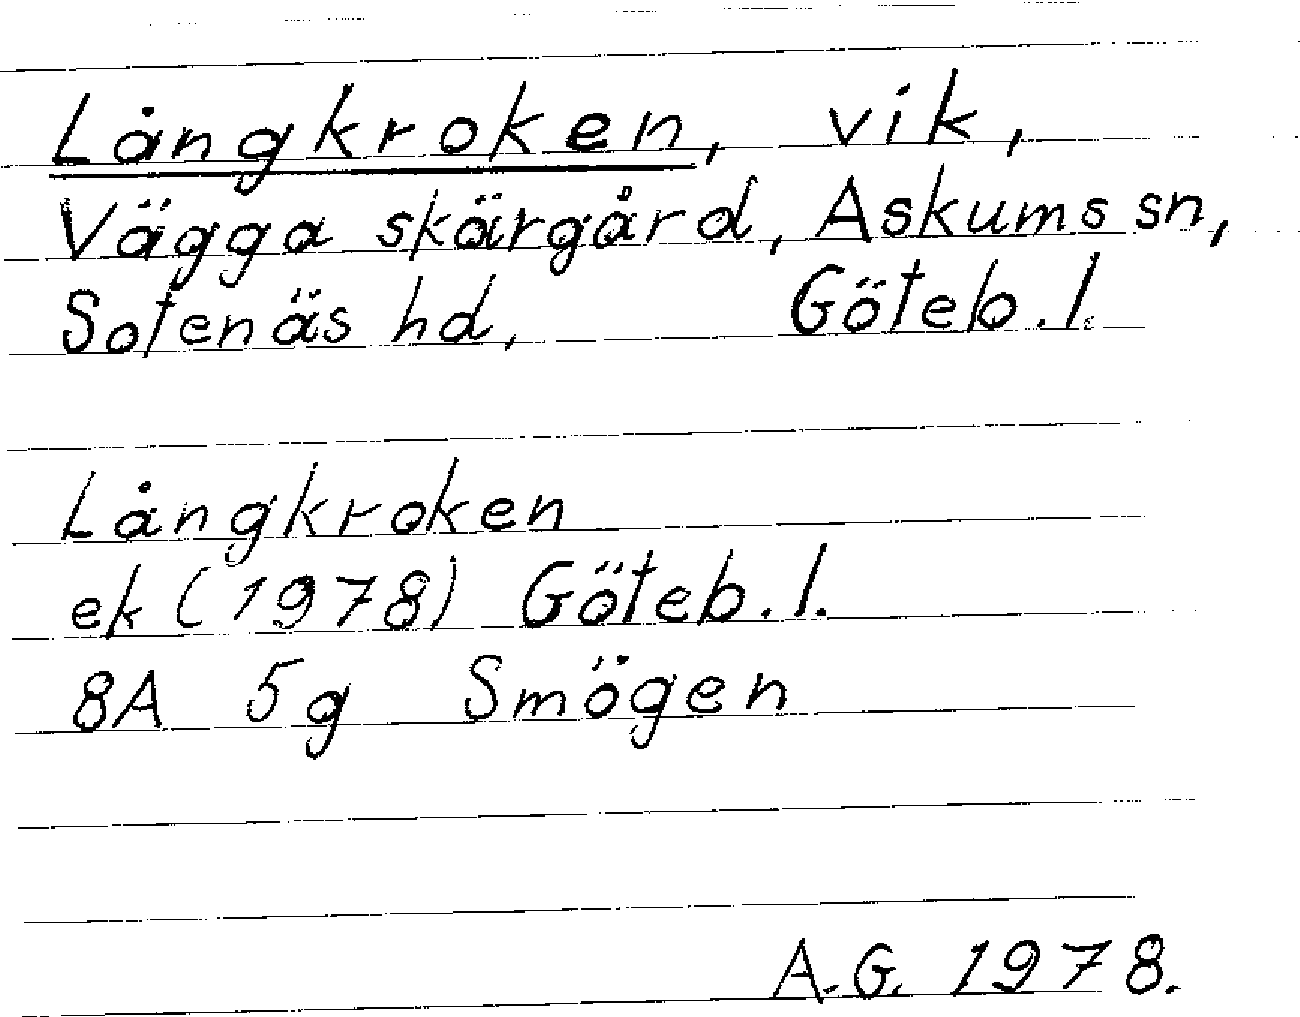 Långkroken, vik,
Vägga skärgård, Askums sn,
Sotenäs hd, Göteb. l.
Långkroken
ek (1978) Göteb. l.
8A 5g Smögen
A.G. 1978.